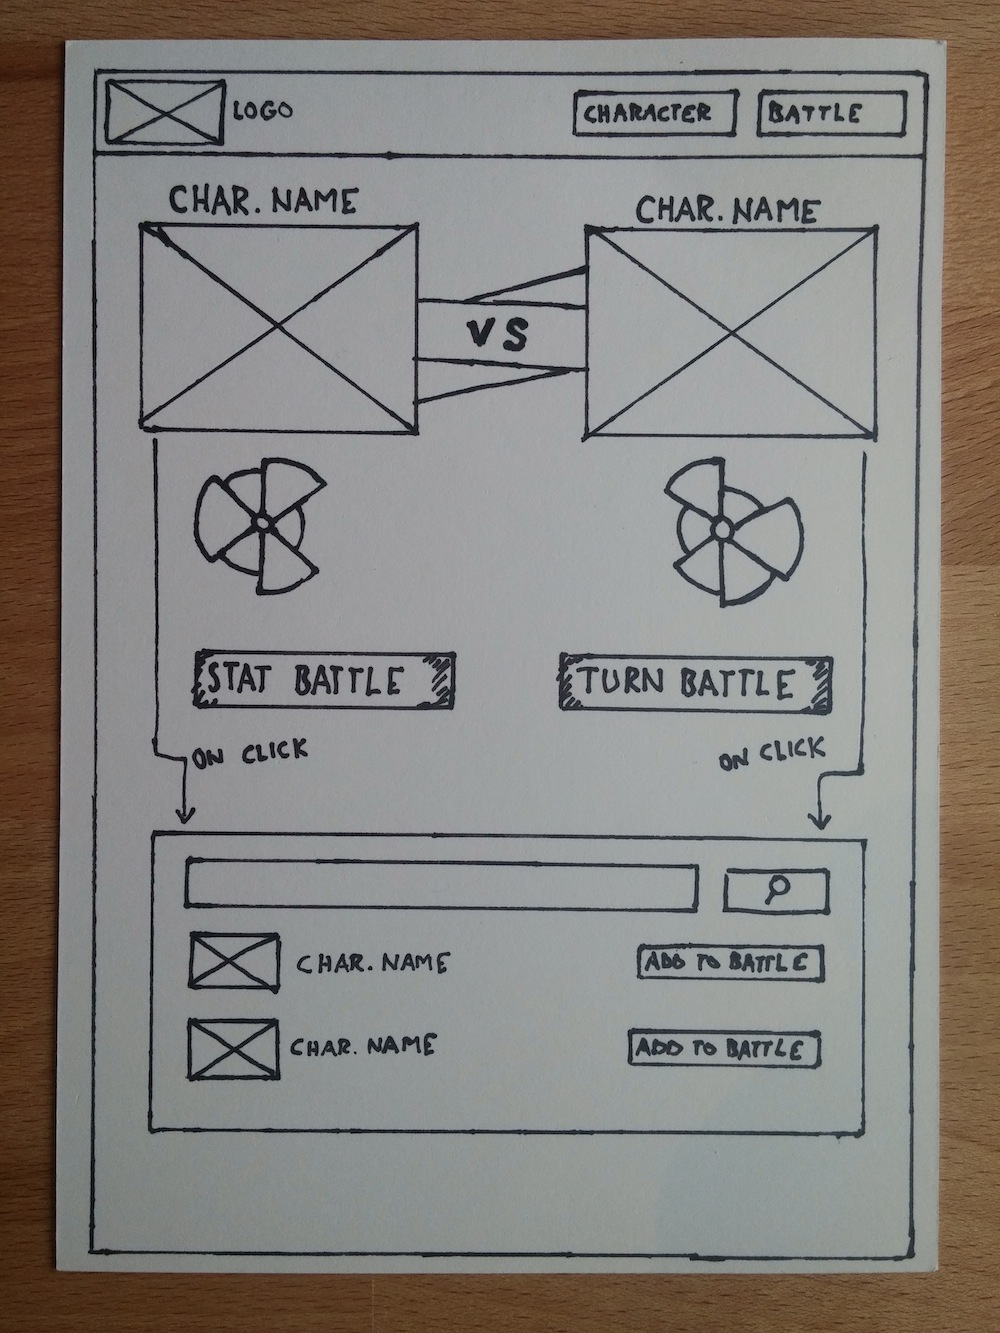 LOGO
CHARACTER
BATTLE
CHAR. NAME
CHAR. NAME
VS
STAT BATTLE
TURN BATTLE
ON CLICK
ON CLICK
CHAR. NAME
ADD TO BATTLE
CHAR. NAME
ADD TO BATTLE